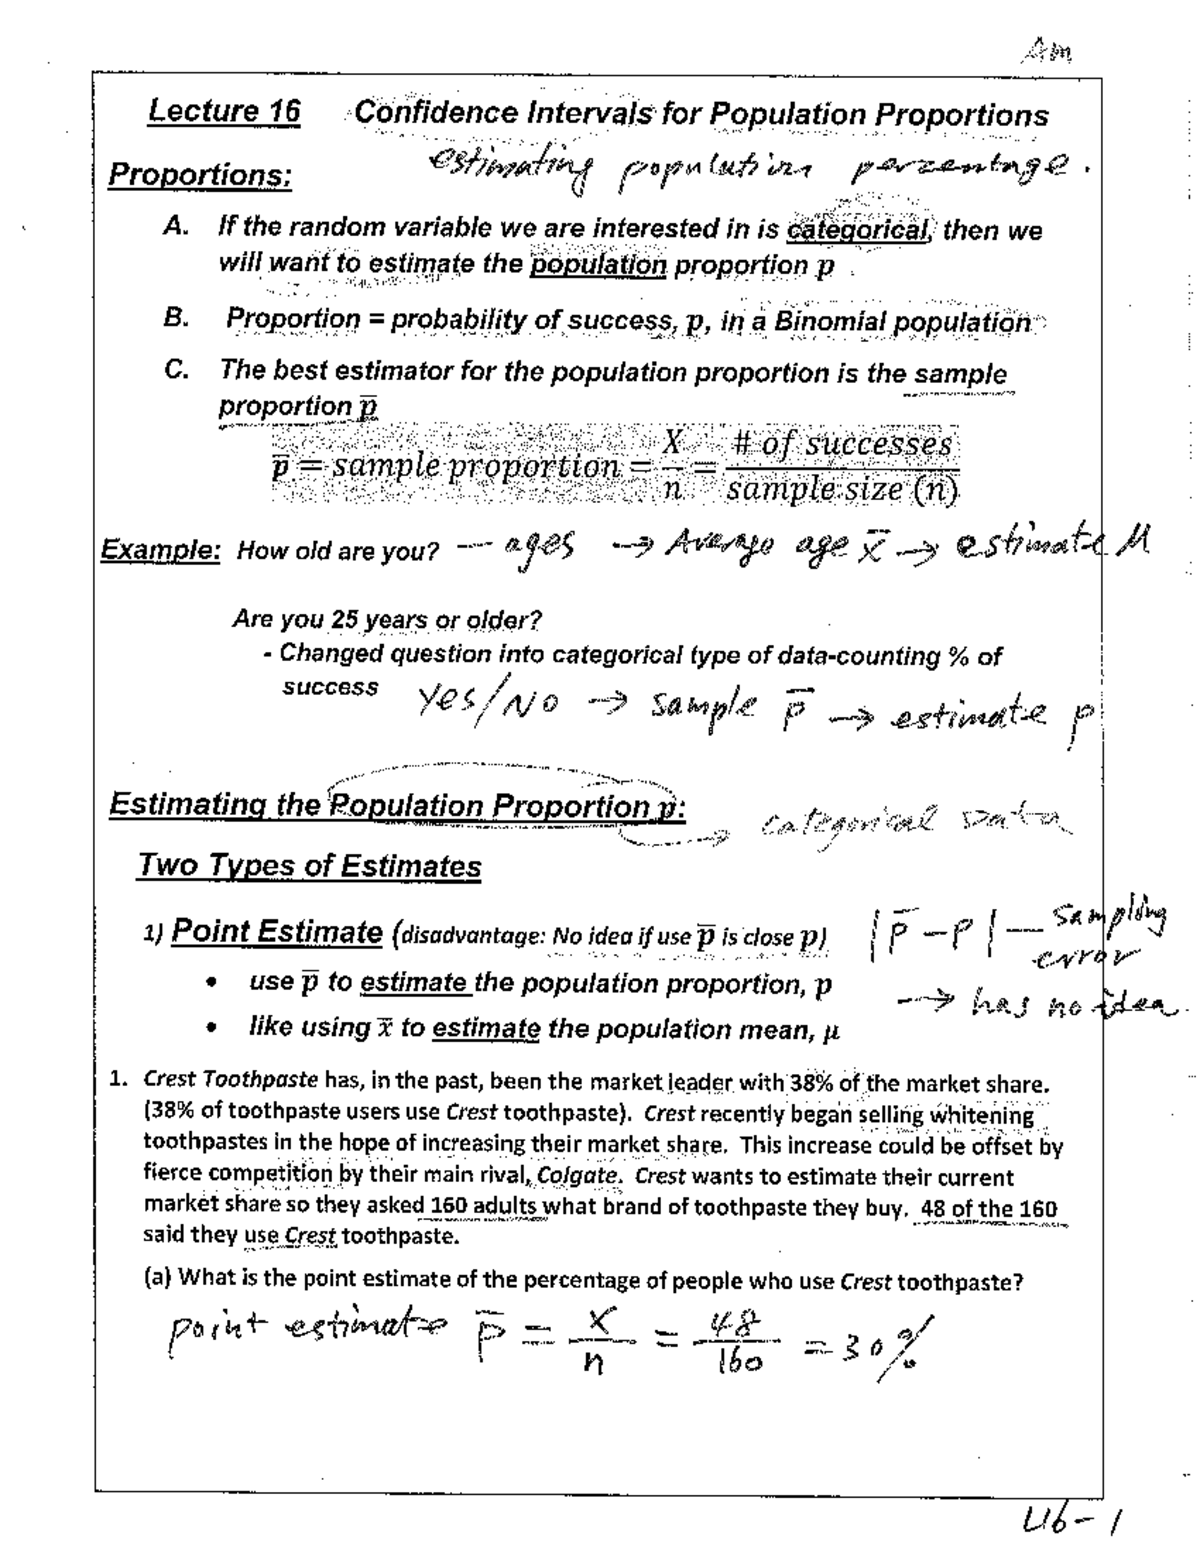 Am
Lecture 16 Confidence Intervals for Population Proportions
estimating population percentage.
Proportions:
A. If the random variable we are interested in is categorical, then we
will want to estimate the population proportion p
B. Proportion = probability of success, p, in a Binomial population
C. The best estimator for the population proportion is the sample
proportion p̅
p̅ = sample proportion = X/n = # of successes / sample size (n)
Example: How old are you? — ages → Average age x̅ → estimate μ
Are you 25 years or older?
- Changed question into categorical type of data-counting % of
success Yes/No → sample p̅ → estimate p
Estimating the Population Proportion p:
→ categorical Data
Two Types of Estimates
1) Point Estimate (disadvantage: No idea if use p̅ is close p) |p̅ - p| — sampling
error
• use p̅ to estimate the population proportion, p
→ has no idea.
• like using x̅ to estimate the population mean, μ
1. Crest Toothpaste has, in the past, been the market leader with 38% of the market share.
(38% of toothpaste users use Crest toothpaste). Crest recently began selling whitening
toothpastes in the hope of increasing their market share. This increase could be offset by
fierce competition by their main rival, Colgate. Crest wants to estimate their current
market share so they asked 160 adults what brand of toothpaste they buy. 48 of the 160
said they use Crest toothpaste.
(a) What is the point estimate of the percentage of people who use Crest toothpaste?
point estimate p̅ = x/n = 48/160 = 30%
L16-1